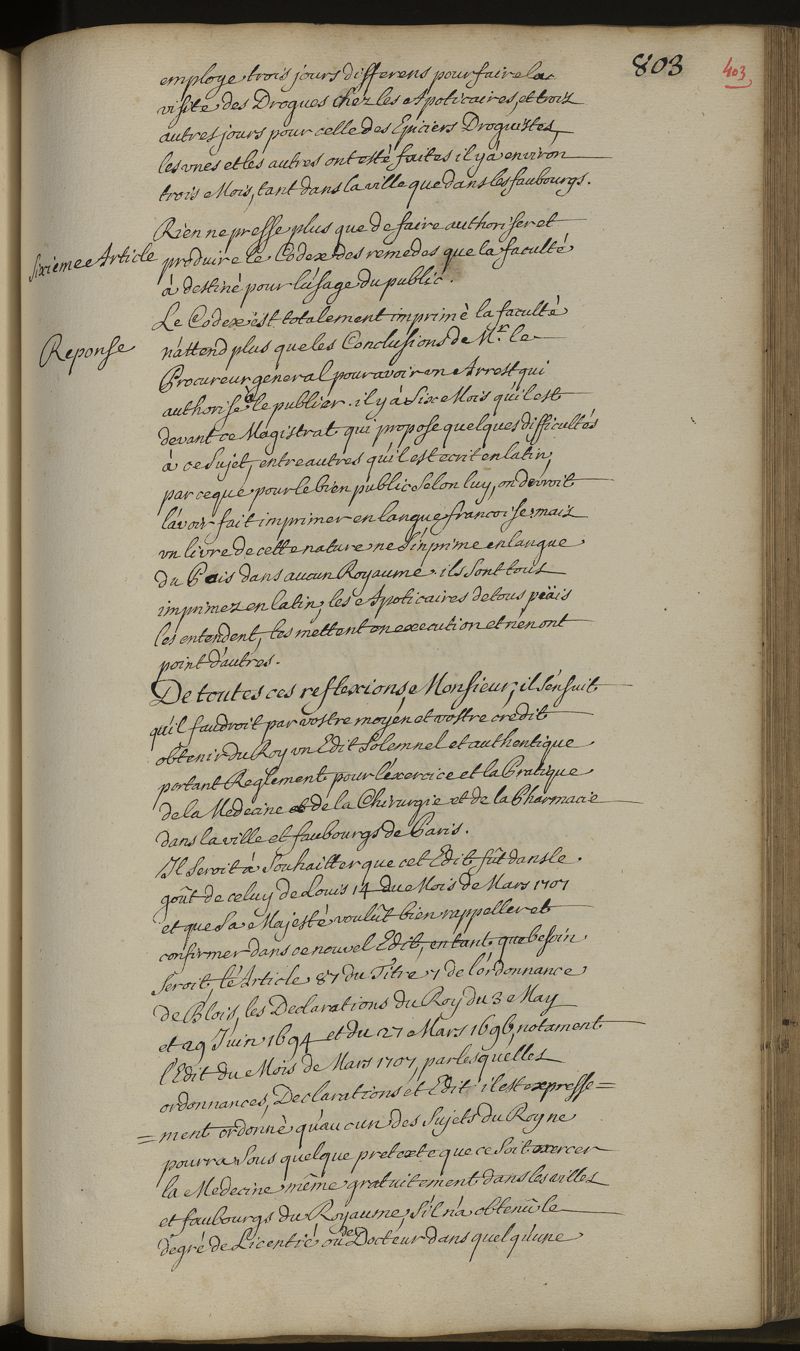 803
403
employe trois jours differens pour faire la
visite des Drogues chez les Apoticaires, et trois
autres jours pour celle des Epiciers Droguistes,
les unes et les autres ont esté faites il y à environ
trois Mois, tant dans la ville que dans les faubourgs.
Sixieme Article
Rien ne presse plus que de faire authoriser et
produire le Codex des remedes que la faculté
à destiné pour l'usage du public.
Reponse
Le Codex est totalement imprimé la faculté
n'attend plus que les Conclusions de Mr. le
Procureur general pour avoir un Arrest qui
authorise à le publier. il y à Six Mois qu'il est
devant ce Magistrat qui propose quelques difficultés
à ce Sujet, entre autres qu'il est ecrit en latin,
parceque pour le bien public Selon luy, on devroit
l'avoir fait imprimer en langue francoise mais
un livre de cette nature ne S'inprime en langue
du Pais dans aucun Royaume. ils Sont tous
imprimez en latin, les Apoticaires de tous païs
les entendent, les mettent en execution et n'en ont
point d'autres.
De toutes ces reflexions Monsieur, il S'ensuit
qu'il faudroit par vostre moyén et vostre credit
obtenir du Roy un Edit Solemnel et authentique
portant Reglement pour l'exercice et la Pratique
de la Medecine et de la Chirurgie et de la Pharmacie
dans la ville et faubourgs de Paris.
Il Seroit à Souhaitter que cet Edit fût dans le
goût de celuy de Louis 14 du Mois de Mars 1707
et que Sa Majesté voulût bien rappeller et
confirmer dans ce nouvel Edit, en tant que besoin
Seroit, l'Article 87 du Titre 7 de l'ordonnance
de Blois, les Declarations du Roy du 3 May
et 29 Juin 1694 et du 27 Mars 1696, notament
l'Edit du Mois de Mars 1707, par lesquelles
ordonnances, Declarations et Edit il est expresse=
=ment ordonné qu'aucun des Sujets du Roy ne
pourra Sous quelque pretexte que ce Soit exercer
la Medecine même gratuitement dans les villes
et faubourgs du Royaume, S'il n'a obtenu le
degré de Licentié ou de Docteur dans quelqu'une